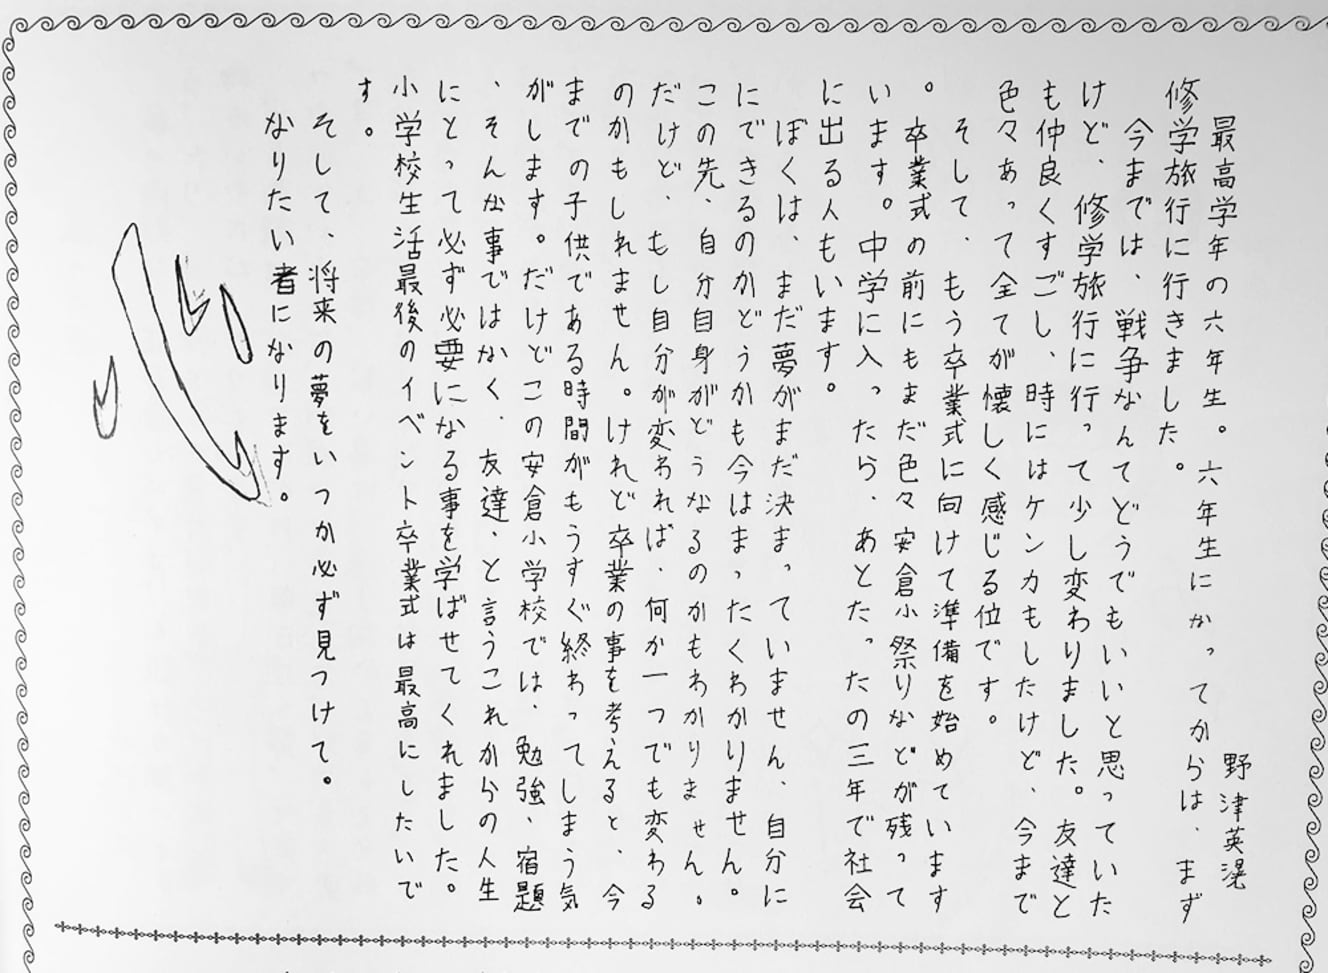 野津英滉
最高学年の六年生。六年生になってからは、まず
修学旅行に行きました。
今までは、戦争なんてどうでもいいと思っていた
けど、修学旅行に行って少し変わりました。友達と
も仲良くすごし、時にはケンカもしたけど、今まで
色々あって全てが懐しく感じる位です。
そして、もう卒業式に向けて準備を始めています
。卒業式の前にもまだ色々安倉小祭りなどが残って
います。中学に入ったら、あとたったの三年で社会
に出る人もいます。
ぼくは、まだ夢がまだ決まっていません、自分に
にできるのかどうかも今はまったくわかりません。
この先、自分自身がどうなるのかもわかりません。
だけど、もし自分が変われば、何か一つでも変わる
のかもしれません。けれど卒業の事を考えると、今
までの子供である時間がもうすぐ終わってしまう気
がします。だけどこの安倉小学校では、勉強、宿題
、そんな事ではなく、友達、と言うこれからの人生
にとって必ず必要になる事を学ばせてくれました。
小学校生活最後のイベント卒業式は最高にしたいで
す。
そして、将来の夢をいつか必ず見つけて。
なりたい者になります。
心